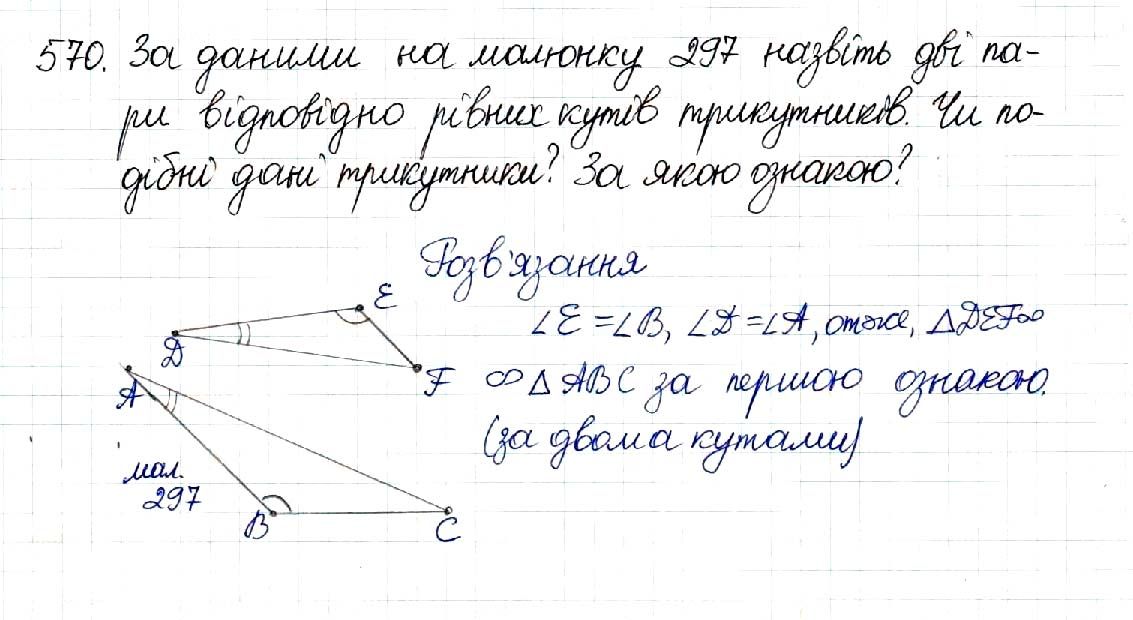 570. За даними на малюнку 297 назвіть дві па-
ри відповідно рівних кутів трикутників. Чи по-
дібні дані трикутники? За якою ознакою?
Розв'язання
E
∠E = ∠B, ∠D = ∠A, отже, △DEF∞
D
F
∞ △ABC за першою ознакою.
A
(за двома кутами)
мал.
297
B
C